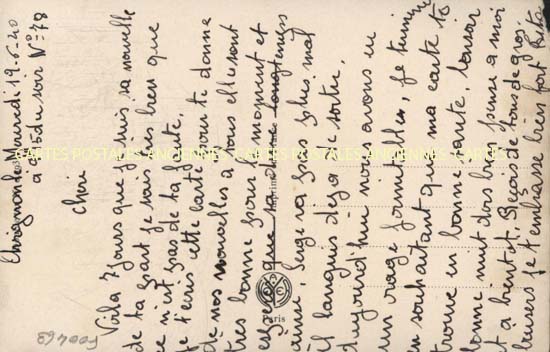 Mercredi 19-6-40
à du soir N° 78
Cheri
Voila 7 jours que je suis sa nouvelle
de ta part je sais bien que
ce n'est pas de ta faute.
je t'ecris cette carte pour te donne
de nos nouvelles à tous elle sont
tres bonne pour le moment et
que sa dure longtemps
ainsi, Serge va pas plus mal
il languis deja de sortir.
Aujourd'hui nous avons eu
un orage formidable, je termine
en souhaitant que ma carte te
trouve en bonne sante, bonsoir
bonne nuit dors bien, pense a moi
t a bientot. Reçois de tous de gros
baisers je t'embrasse bien fort Rita
CARTES POSTALES ANCIENNES . COM
Paris
F00468